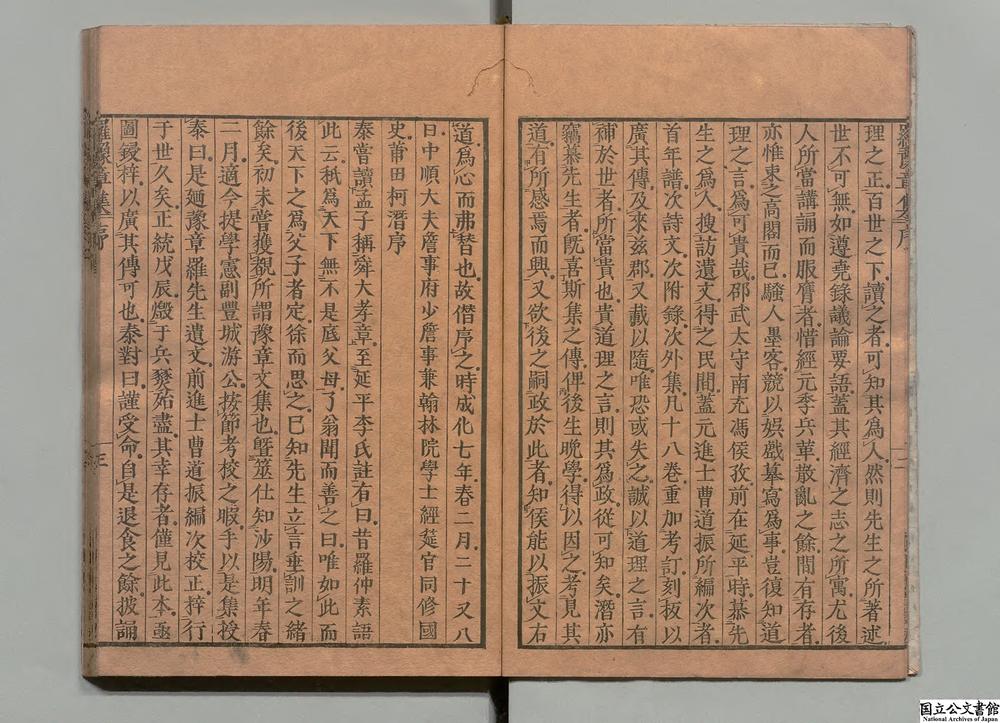 理之正百世之下讀之者可知其爲人然則先生之所著述
世不可無如遵堯錄議論要語蓋其經濟之志之所寓尤後
人所當講誦而服膺者惜經元季兵革散亂之餘間有存者
亦惟束之高閣而已騷人墨客競以娯戲摹寫爲事豈復知道
理之言爲可貴哉邵武太守南充馮侯孜前在延平時慕先
生之爲人搜訪遺文得之民間蓋元進士曹道振所編次者
首年譜次詩文次附錄次外集凡十八卷重加考訂刻板以
廣其傳及來兹郡又載以隨唯恐或失之誠以道理之言有
補於世者所當貴也貴道理之言則其爲政從可知矣潛亦
竊慕先生者旣喜斯集之傳俾後生晩學得以因之考見其
道有所感焉而興又欲後之嗣政於此者知侯能以振文右
道爲心而弗替也故僣序之時成化七年春二月二十又八
日中順大夫詹事府少詹事兼翰林院學士經筵官同修國
史莆田柯潛序
泰嘗讀孟子稱舜大孝章至延平李氏註有曰昔羅仲素語
此云秖爲天下無不是底父母了翁聞而善之曰唯如此而
後天下之爲父子者定徐而思之已知先生立言垂訓之緒
餘矣初未嘗獲覩所謂豫章文集也曁筮仕知沙陽明年春
二月適今提學憲副豐城游公按節考校之暇手以是集授
泰曰是廼豫章羅先生遺文前進士曹道振編次校正梓行
于世久矣正統戊辰燬于兵燹殆盡其幸存者僅見此本亟
圖鋟梓以廣其傳可也泰對曰謹受命自是退食之餘披誦
國立公文書館
National Archives of Japan